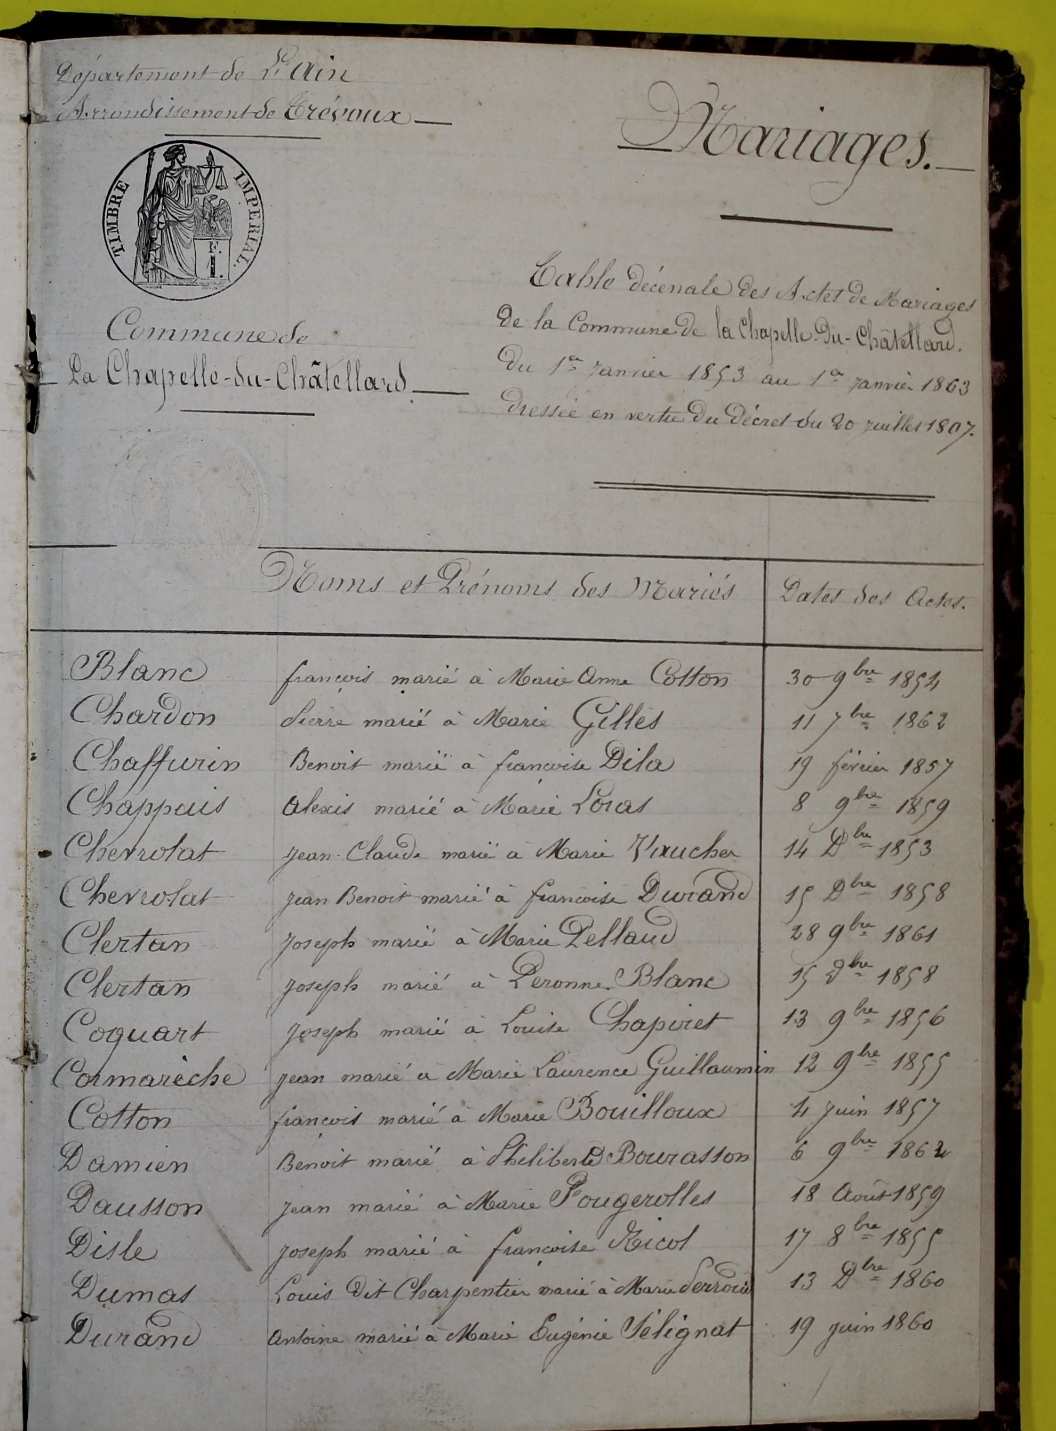 Département de L'Ain
Arrondissement de Trévoux
Mariages.
TIMBRE IMPERIAL.
Commune de
La Chapelle-du-Châtellard
Table décénale des Actes de Mariages
De la Commune de la Chapelle-Du-Châtellard.
Du 1er Janvier 1853 au 1er Janvier 1863
dressée en vertu du décret du 20 juillet 1807.
Noms et Prénoms des Mariés Dates des Actes.
Blanc françois marié à Marie Anne Cotton 30 9bre 1854
Chardon Pierre marié à Marie Gilles 11 7bre 1862
Chaffurin Benoit marié à françoise Dila 19 février 1857
Chappuis alexis marié à Marie Loras 8 9bre 1859
Chevrolat Jean-Claude marié à Marie Vaucher 14 Dbre 1853
Chevrolat Jean Benoit marié à francoise Durand 15 Dbre 1858
Clertan Joseph marié à Marie Pelland 28 9bre 1861
Clertan Joseph marié à Peronne Blanc 15 Dbre 1858
Coquart Joseph marié à Louise Chapiret 13 9bre 1856
Cormarèche Jean marié à Marie Laurence Guillaumin 12 9bre 1855
Cotton françois marié à Marie Bouilloux 4 Juin 1857
Damien Benoit marié à Philiberte Bourasson 6 9bre 1862
Dausson Jean marié à Marie Fougerolles 18 Août 1859
Disle Joseph marié à françoise Nicol 17 8bre 1855
Dumas Louis Dit Charpentier marié à Marie 13 Dbre 1860
Durand Antoine marié à Marie Eugénie Pélignat 19 juin 1860